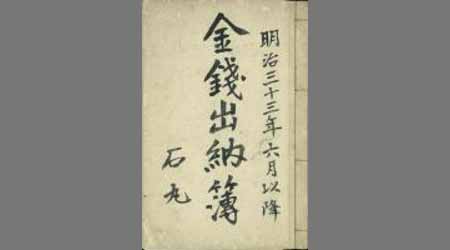 明治三十三年六月以降
金錢出納簿
石丸